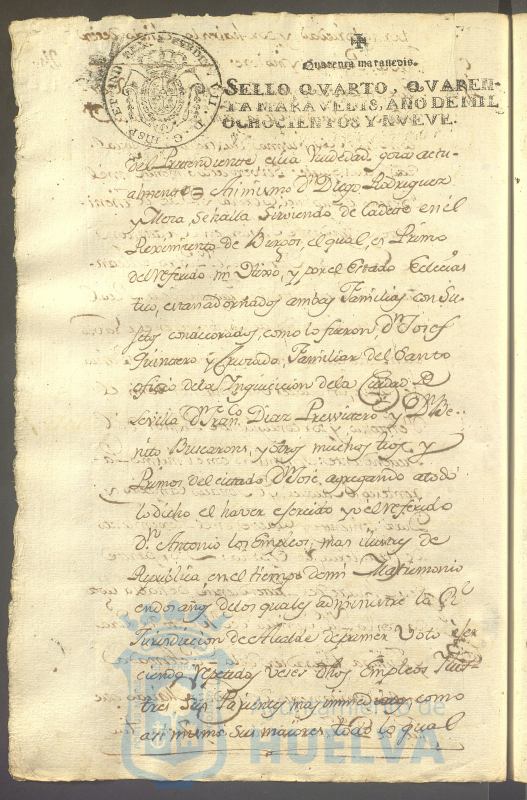 Quarenta maravedis.
SELLO QVARTO, QVAREN-
TA MARAVEDIS, AÑO DE MIL
OCHOCIENTOS Y NVEVE.
del Pretendiente en la Viudedad goza actu-
almente Asi mismo Dn. Diego Rodriguez
y Mora, se halla sirviendo de Cadete en el
Reximiento de Burgos, el qual, es Primo
del referido mi Nixo, y por el Estado Eclecias
tico, estan adornados ambas Familias con Su-
jetos condecorados, como lo fueron Dn. Josef
Quintero y Cruzado, Familiar del Santo
oficio de la Ynquicicion de la Ciudad D
Sevilla Dn. Fran.co Diaz Presvitero y Dn. Be-
nito Buscarons, y otros muchos tios, y
Primos del citado Dn. José, agregando a todo
lo dicho el haver exercido yo el referido
Dn. Antonio los Empleos, mas ilustres de
Republica, en el tiempo de mi Matrimonio
en dos años de los quales administre la Rl.
Jurisdiccion de Alcalde de primer Voto exer
ciendo repetidas veses dhos Empleos Ilus
tres Sus Parientes mas inmediatos, como
asi mismo Sus maiores, todo lo qual
Ayuntamiento de
HUELVA